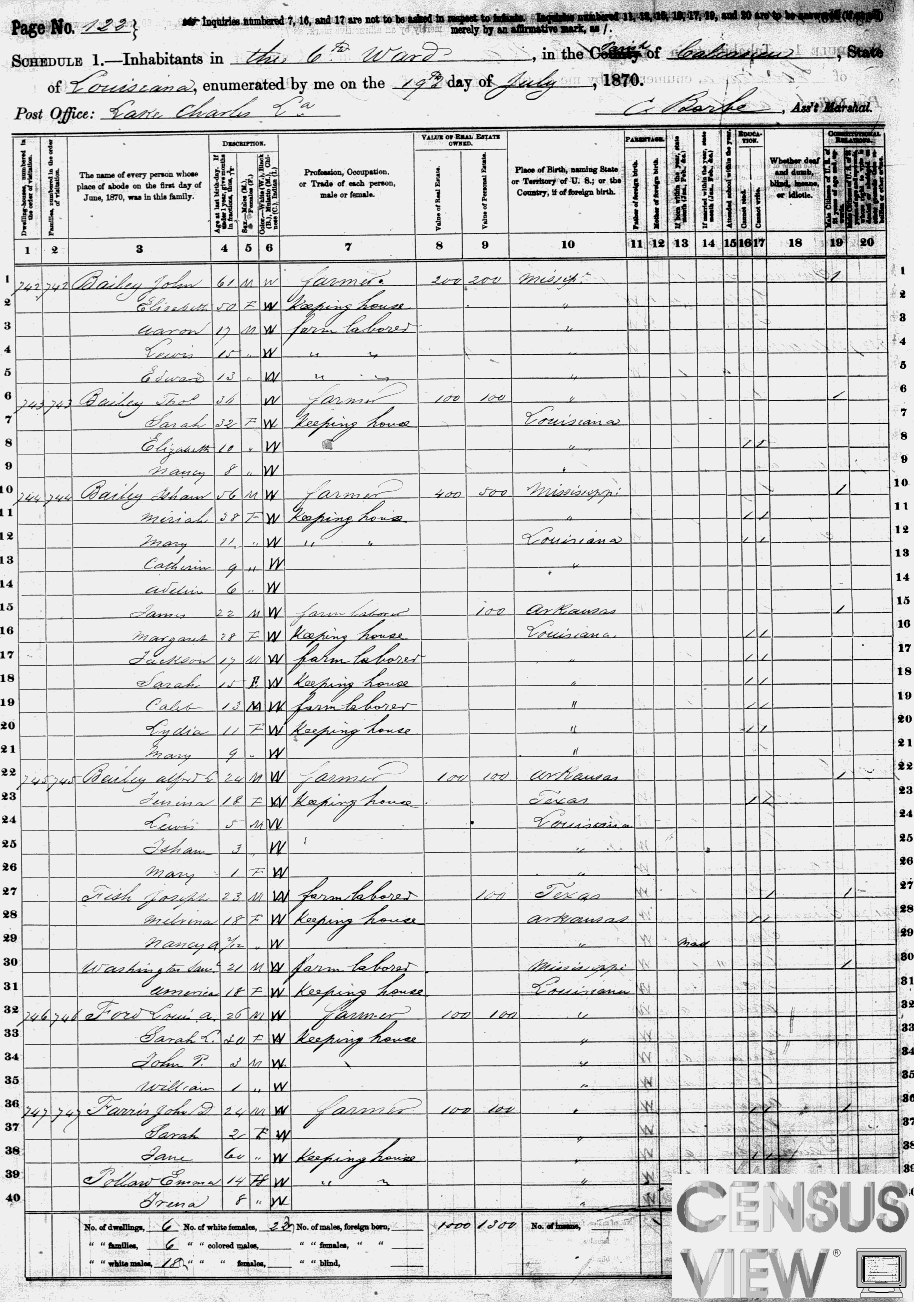 Page No. 122
Inquiries numbered 7, 16, and 17 are not to be asked in respect to infants. Inquiries numbered 11, 12, 15, 16, 17, 19, and 20 are to be answered
merely by an affirmative mark, as /.
SCHEDULE 1.—Inhabitants in the 6th Ward, in the County of, State
of Louisiana, enumerated by me on the 19th day of July, 1870.
Post Office: Lake Charles La C. Barbe, Ass't Marshal.
DESCRIPTION. VALUE OF REAL ESTATE OWNED. PARENTAGE. EDUCATION. CONSTITUTIONAL RELATIONS.
Dwelling-houses, numbered in the order of visitation.
Families, numbered in the order of visitation.
The name of every person whose place of abode on the first day of June, 1870, was in this family.
Age at last birth-day.
Sex.—Males (M.), Females (F.)
Profession, Occupation, or Trade of each person, male or female.
Value of Real Estate.
Value of Personal Estate.
Place of Birth, naming State or Territory of U. S.; or the Country, if of foreign birth.
Father of foreign birth.
Mother of foreign birth.
Attended school within the year.
Cannot read.
Cannot write.
Whether deaf and dumb, blind, insane, or idiotic.
1 2 3 4 5 6 7 8 9 10 11 12 13 14 15 16 17 18 19 20
1 742 742 Bailey John 61 M W farmer 200 200 Missipi / 1
2 Elizabeth 50 F W Keeping house " 2
3 Aaron 17 M W farm labored " 3
4 Lewis 15 " W " " " 4
5 Edward 13 " W " " " 5
6 743 743 Bailey Thos 36 W farmer 100 100 " / 6
7 Sarah 32 F W Keeping house Louisiana 7
8 Elizabeth 10 " W " / / 8
9 Nancy 8 " W " 9
10 744 744 Bailey Isham 56 M W farmer 400 500 Mississippi / 10
11 Miriah 38 F W Keeping house " / / 11
12 Mary 11 " W " " Louisiana / / 12
13 Catherin 9 " W " 13
14 Adelin 6 " W " 14
15 James 22 M W farm labored 100 Arkansas / 15
16 Margaret 28 F W Keeping house Louisiana / / 16
17 Jackson 17 M W farm labored " / / 17
18 Sarah 15 F W Keeping house / / 18
19 Caleb 13 M W farm labored " / / 19
20 Lydia 11 F W Keeping house " / / 20
21 Mary 9 " W " 21
22 745 745 Bailey Alfred 24 M W farmer 100 100 Arkansas / 22
23 18 F W Keeping house Texas / / 23
24 Lewis 5 M W Louisiana 24
25 Isham 3 " W " 25
26 Mary 1 F W " 26
27 Fish Joseph 23 M W farm labored 100 Texas / / 27
28 Melvina 18 F W Keeping house Arkansas / / 28
29 Nancy A " W " 29
30 Washington Saml 21 M W farm labored Mississippi / 30
31 America 18 F W Keeping house Louisiana 31
32 746 746 Ford Louis A. 26 M W farmer 100 100 " 32
33 Sarah L. 20 F W Keeping house " 33
34 John P. 3 M W " 34
35 William 1 " W " 35
36 747 747 Farris John D 24 M W farmer 100 100 " / / / 36
37 Sarah 2 F W " 37
38 Jane 60 " W Keeping house " 38
39 Pollow Emma 14 F W " " " 39
40 Irena 8 " W 40
No. of dwellings, 6 No. of white females, 22 No. of males, foreign born, 1000 1300 No. of insane,
" " families, 6 " " colored males, " " females, " "
" " white males, 18 " " " females, " " blind,
CENSUS
VIEW®